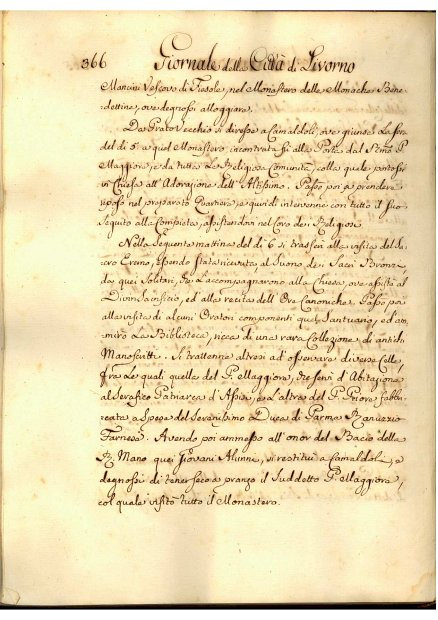 366 Giornale della Città di Livorno
Mancini Vescovo di Fiesole, nel Monastero delle Monache Bene-
dettine, ove degnossi alloggiare.
Da Prato Vecchio si diresse a Camaldoli, ove giunse la sera
del dì 5 a quel Monastero incontrata fu alla Porta dal P.
Maggiore, e da tutta la Religiosa Comunità, colla quale portossi
in Chiesa all'Adorazione dell'Altissimo. Passò poi a prendere
riposo nel preparato Quartiere, e quindi intervenne con tutto il suo
seguito alla Compieta, assistendovi nel Coro dei Religiosi
Nella seguente mattina del dì 6 si trasferì alla visita del Sa-
cro Eremo, essendo stata ricevuta al suono dei Sacri Bronzi
da quei Solitari, che l'accompagnarono alla Chiesa, ove assistè al
Divin Sacrifizio, ed alla recita dell'Ore Canoniche. Passò poi
alla visita di alcuni Oratori componenti quel Santuario, ed am-
mirò la Biblioteca, ricca di una rara Collezione di antichi
Manoscritti. Si trattenne altresì ad osservare diverse Celle,
fra le quali quella del P. Maggiore, che servì d'Abitazione
al Serafico Patriarca d'Assisi, e l'altra del P. Priore fabbri-
cata a spese del Serenissimo Duca di Parma Ranuccio
Farnese. Avendo poi ammesso all'onor del Bacio della
R. Mano quei Giovani Alunni, si restituì a Camaldoli, e
degnossi di tener seco a pranzo il suddetto P. Maggiore,
col quale visitò tutto il Monastero.